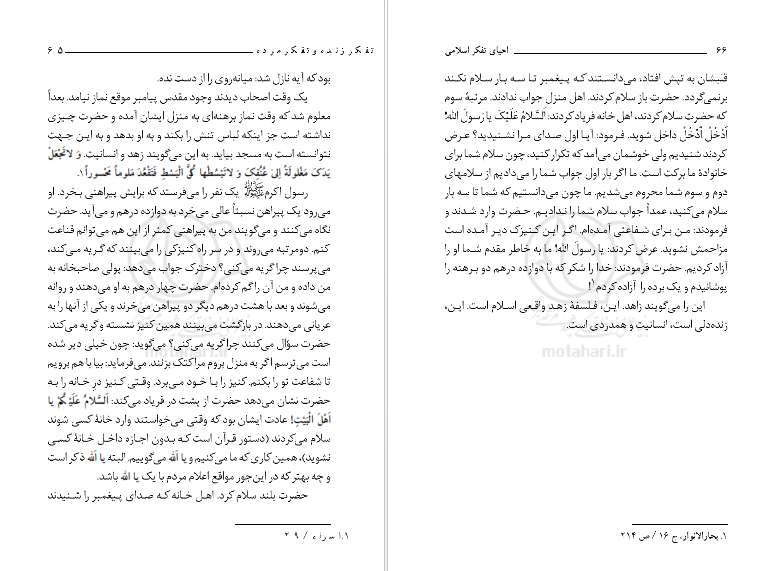 تفکر زنده و تفکر مرده ۶۵
بود که آیه نازل شد: میانه‌روی را از دست نده.
یک وقت اصحاب دیدند وجود مقدس پیامبر موقع نماز نیامد. بعداً
معلوم شد که وقت نماز برهنه‌ای به منزل ایشان آمده و حضرت چیزی
نداشته است جز اینکه لباس تنش را بکند و به او بدهد و به این جهت
نتوانسته است به مسجد بیاید. به این می‌گویند زهد و انسانیت. وَ لا تَجْعَلْ
یَدَکَ مَغْلولَةً اِلیٰ عُنُقِکَ وَ لا تَبْسُطْها کُلَّ الْبَسْطِ فَتَقْعُدَ مَلوماً مَحْسوراً ۱.
رسول اکرم ﷺ یک نفر را می‌فرستد که برایش پیراهنی بخرد. او
می‌رود یک پیراهن نسبتاً عالی می‌خرد به دوازده درهم و می‌آید. حضرت
نگاه می‌کنند و می‌گویند من به پیراهنی کمتر از این هم می‌توانم قناعت
کنم. دومرتبه می‌روند و در سر راه کنیزکی را می‌بینند که گریه می‌کند،
می‌پرسند چرا گریه می‌کنی؟ دخترک جواب می‌دهد: پولی صاحبخانه به
من داده و من آن را گم کرده‌ام. حضرت چهار درهم به او می‌دهند و روانه
می‌شوند و بعد با هشت درهم دیگر دو پیراهن می‌خرند و یکی از آنها را به
عریانی می‌دهند. در بازگشت می‌بینند همین کنیز نشسته و گریه می‌کند.
حضرت سؤال می‌کنند چرا گریه می‌کنی؟ می‌گوید: چون خیلی دیر شده
است می‌ترسم اگر به منزل بروم مرا کتک بزنند. می‌فرماید: بیا با هم برویم
تا شفاعت تو را بکنم. کنیز را با خود می‌برد. وقتی کنیز درِ خانه را به
حضرت نشان می‌دهد حضرت از پشت در فریاد می‌کند: اَلسَّلامُ عَلَیْکُمْ یا
اَهْلَ الْبَیْتِ! عادت ایشان بود که وقتی می‌خواستند وارد خانهٔ کسی شوند
سلام می‌کردند (دستور قرآن است که بدون اجازه داخل خانهٔ کسی
نشوید)، همین کاری که ما می‌کنیم و یا الله می‌گوییم. البته یا الله ذکر است
و چه بهتر که در این‌جور مواقع اعلام مردم با یک یا الله باشد.
حضرت بلند سلام کرد. اهل خانه که صدای پیغمبر را شنیدند
۱. اسراء / ۲۹
۶۶ احیای تفکر اسلامی
قلبشان به تپش افتاد، می‌دانستند که پیغمبر تا سه بار سلام نکند
برنمی‌گردد. حضرت باز سلام کردند. اهل منزل جواب ندادند. مرتبهٔ سوم
که حضرت سلام کردند، اهل خانه فریاد کردند: اَلسَّلامُ عَلَیْکَ یا رَسولَ اللّه!
اُدْخُلْ اُدْخُلْ داخل شوید. فرمود: آیا اول صدای مرا نشنیدید؟ عرض
کردند شنیدیم ولی خوشمان می‌آمد که تکرار کنید، چون سلام شما برای
خانوادهٔ ما برکت است. ما اگر بار اول جواب شما را می‌دادیم از سلامهای
دوم و سوم شما محروم می‌شدیم. ما چون می‌دانستیم که شما تا سه بار
سلام می‌کنید، عمداً جواب سلام شما را ندادیم. حضرت وارد شدند و
فرمودند: من برای شفاعتی آمده‌ام. اگر این کنیزک دیر آمده است
مزاحمش نشوید. عرض کردند: یا رسول الله! ما به خاطر مقدم شما او را
آزاد کردیم. حضرت فرمودند: خدا را شکر که با دوازده درهم دو برهنه را
پوشانیدم و یک برده را آزاده کردم ۱!
این را می‌گویند زاهد. این، فلسفهٔ زهد واقعی اسلام است. این،
زنده‌دلی است، انسانیت و همدردی است.
۱. بحارالانوار، ج ۱۶ / ص ۲۱۴
motahari.ir
motahari.ir